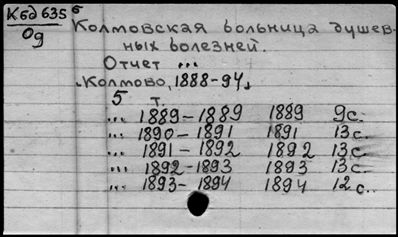 Кбд 635 б
Од
Колмовская больница душев-
ных болезней.
Отчет ...
Колмово, 1888-94,
5 т.
... 1889-1889 1889 9с.
... 1890-1891 1891 13с.
... 1891-1892 1892 13с.
... 1892-1893 1893 13с.
... 1893-1894 1894 12с.